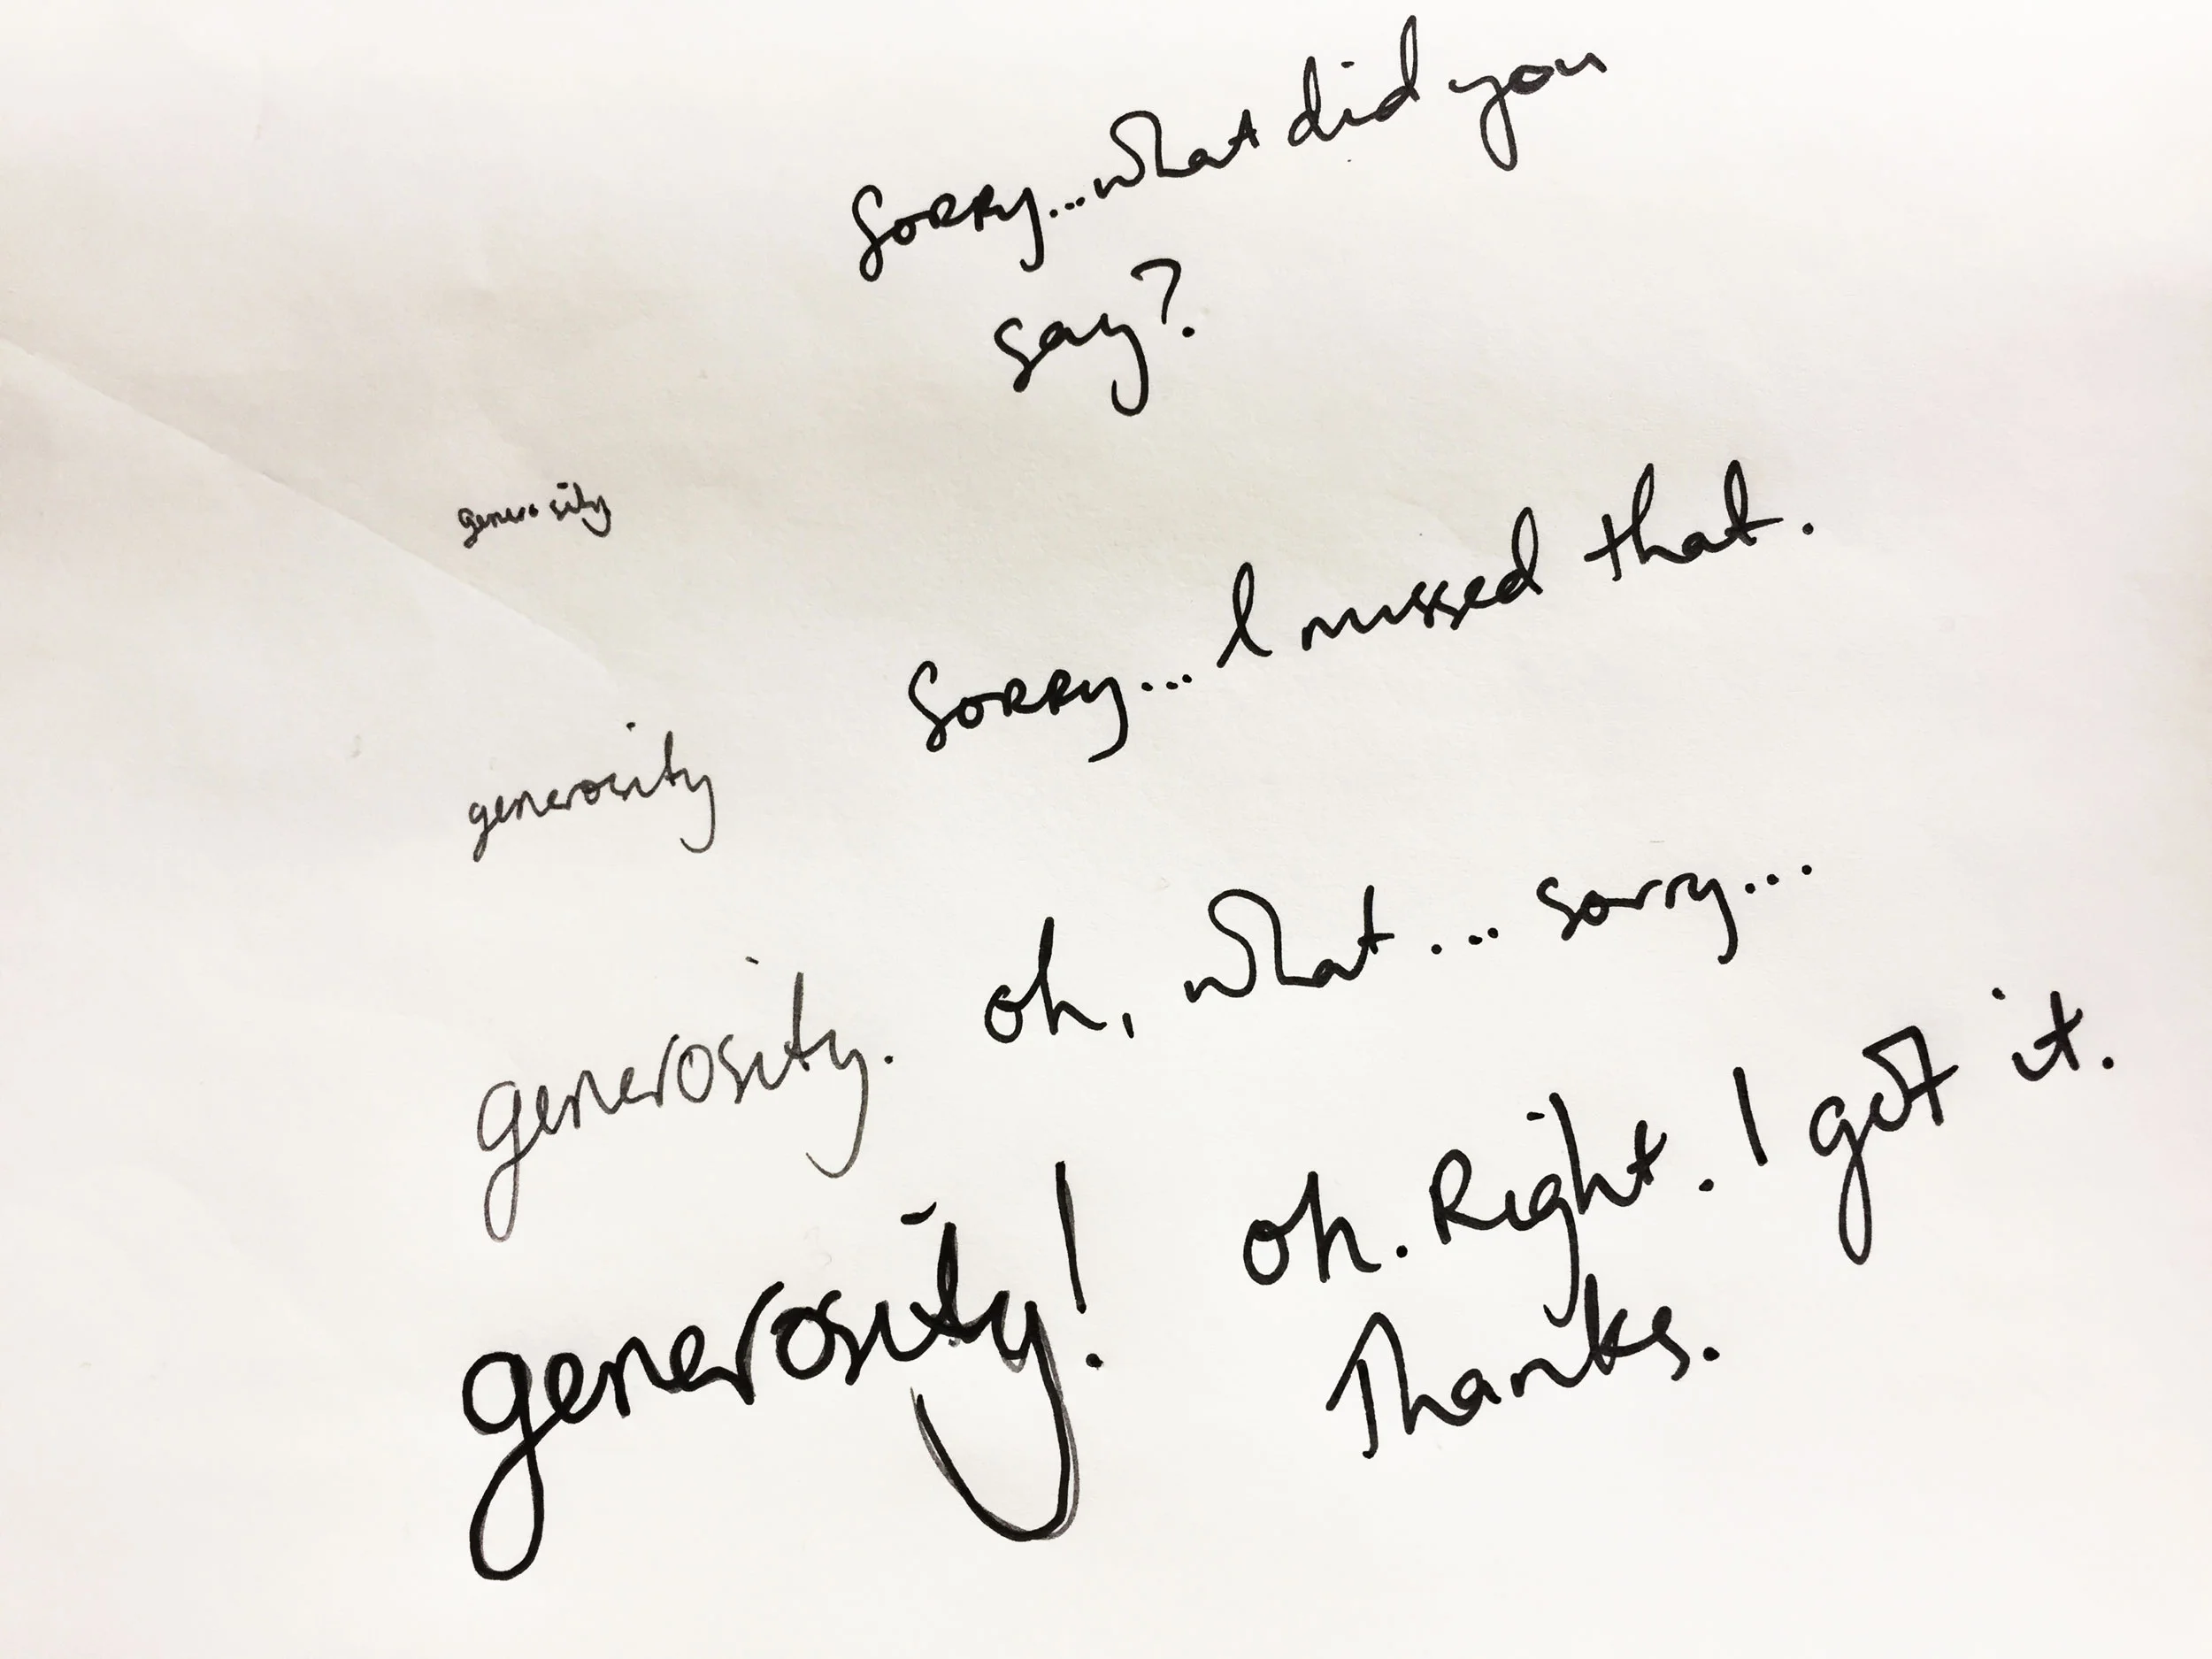 Sorry...what did you
say?
generosity
Sorry... I missed that.
generosity
oh, what... sorry...
generosity.
oh. Right. I got it.
Thanks.
generosity!